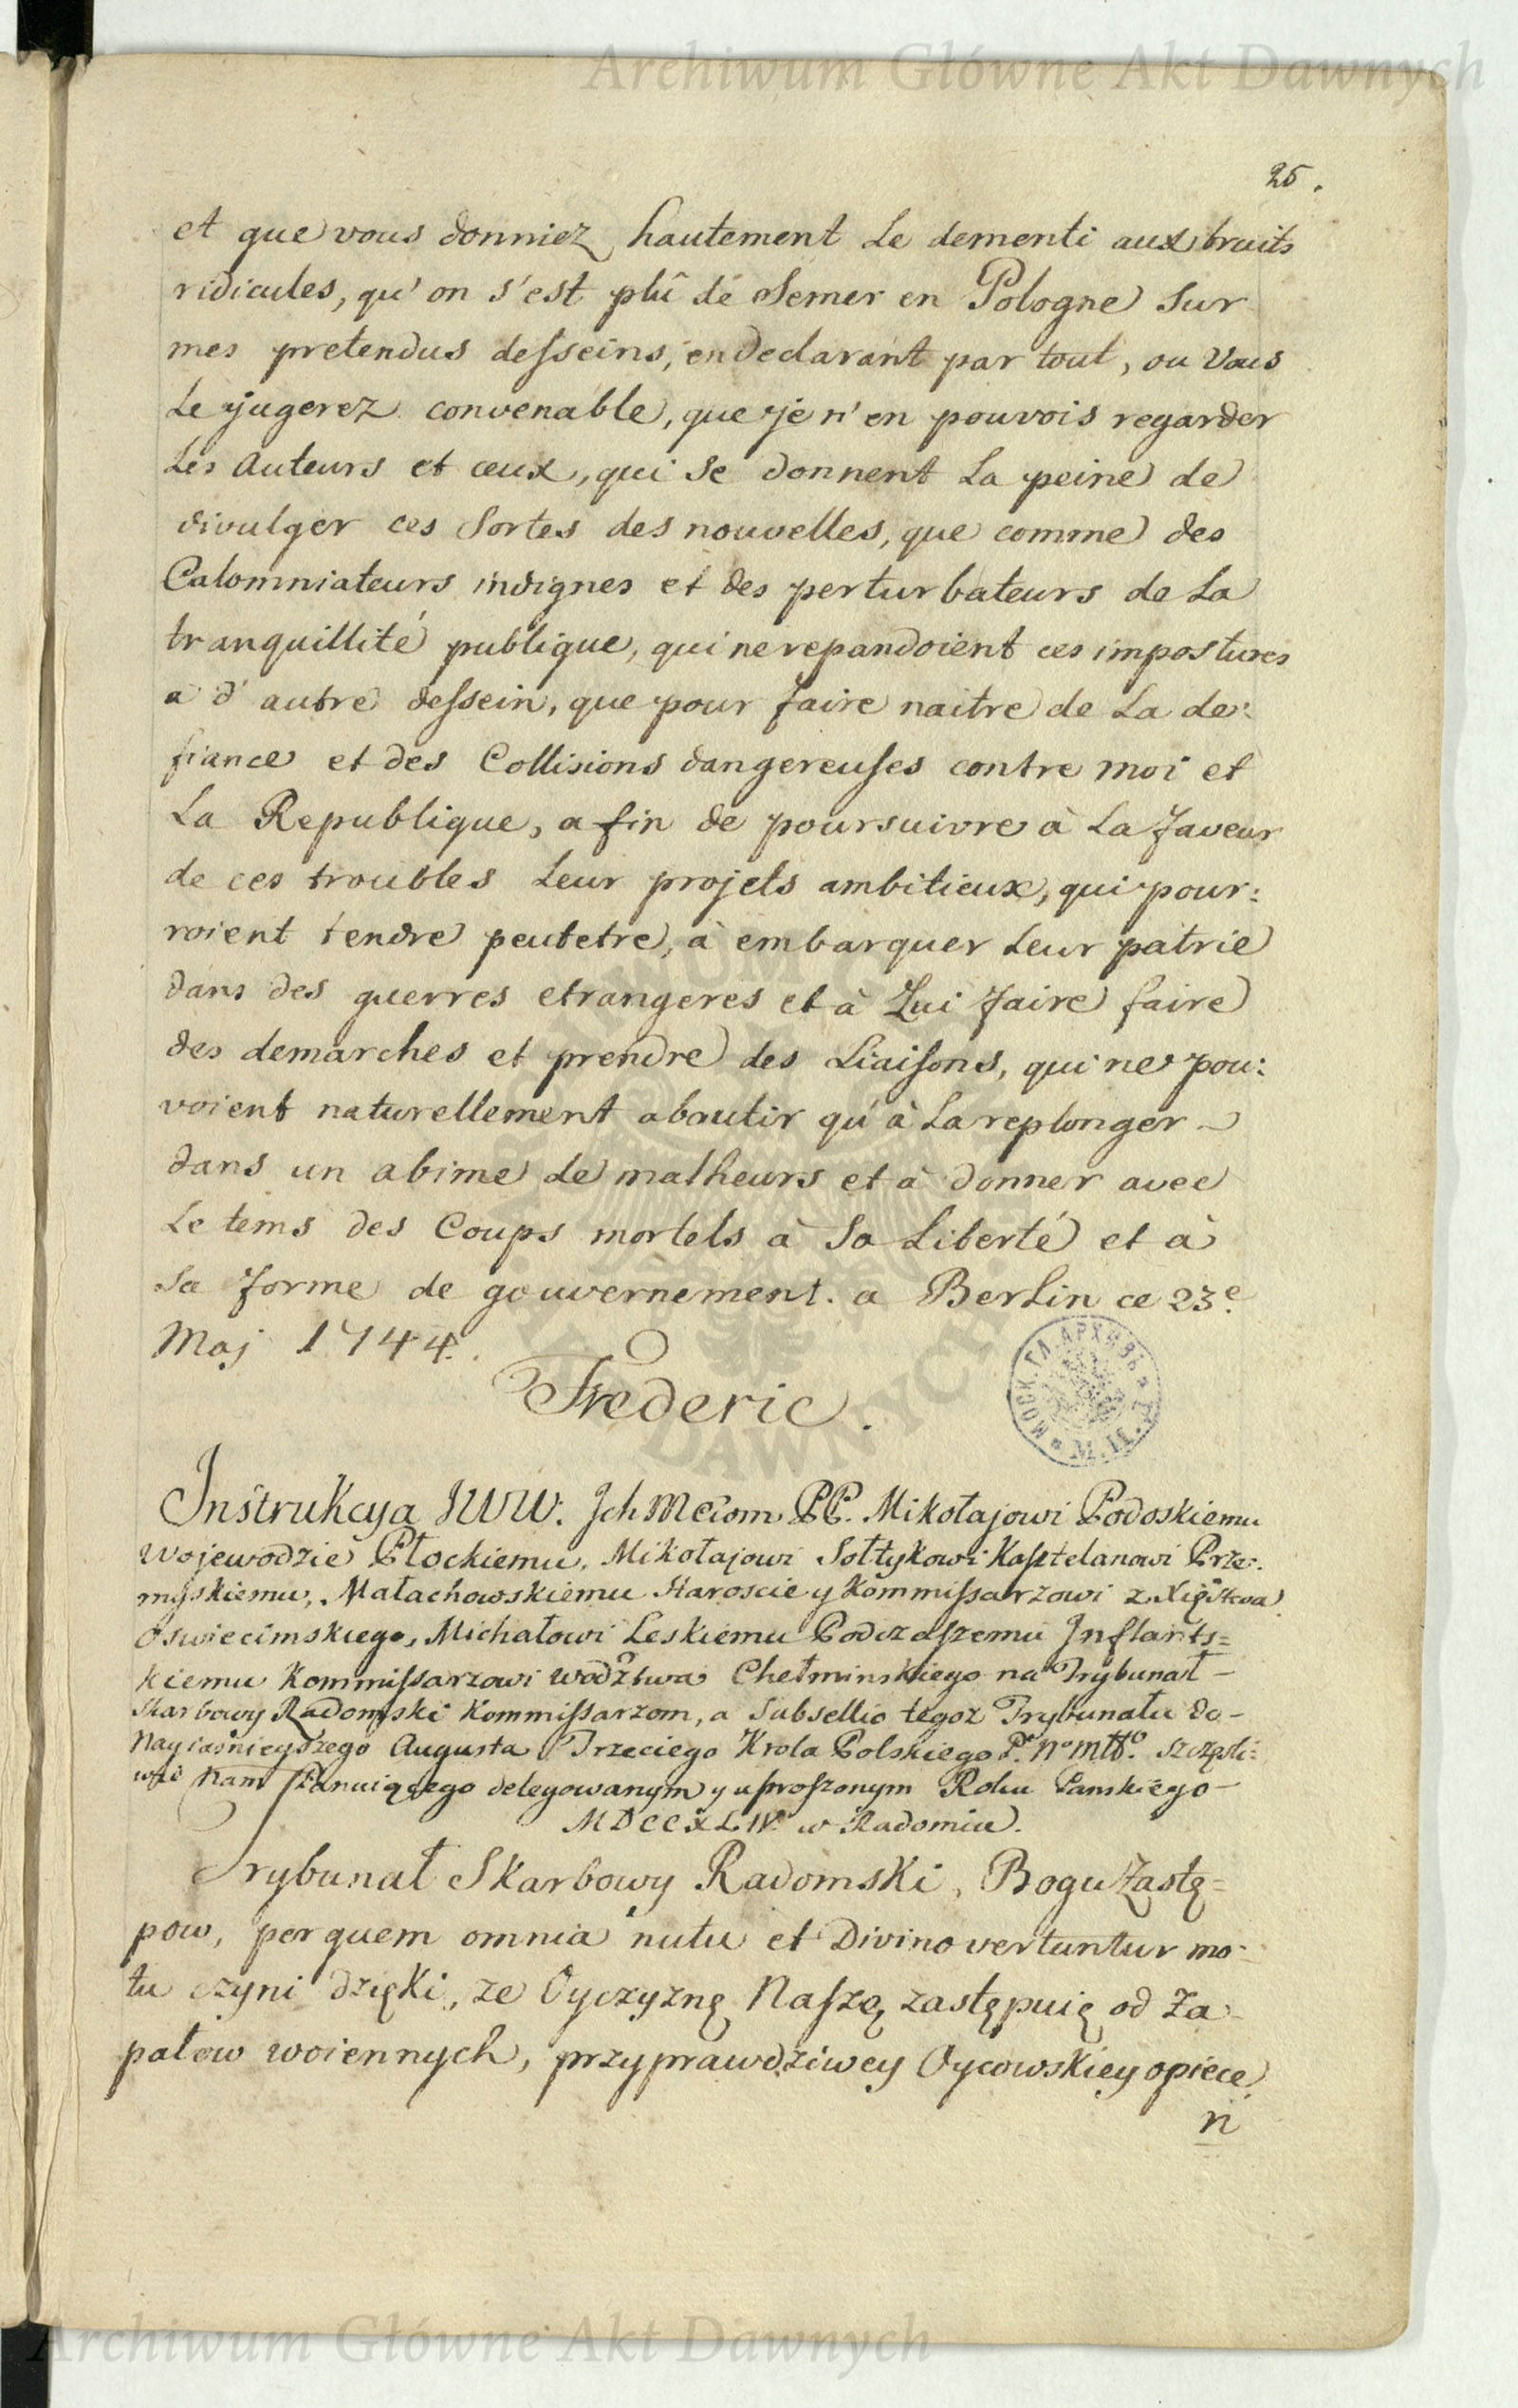 Archiwum Główne Akt Dawnych
25.
et que vous donniez hautement le dementi aux bruits
ridicules, qu'on s'est plû de semer en Pologne sur
mes pretendus desseins, en declarant par tout, ou Vous
le jugerez convenable, que je n'en pouvois regarder
les Auteurs et ceux, qui se donnent la peine de
divulger ces sortes des nouvelles, que comme des
Calomniateurs indignes et des perturbateurs de la
tranquillité publique, qui ne repandoient ces impostures
a d'autre dessein, que pour faire naitre de la de:
fiance et des Collisions dangereuses contre moi et
la Republique, a fin de poursuivre à la faveur
de ces troubles leur projets ambitieux, qui pour:
roient tendre peutetre, à embarquer leur patrie
dans des guerres etrangeres et à Lui faire faire
des demarches et prendre des liaisons, qui ne pou:
voient naturellement aboutir qu'à la replonger
dans un abime de malheurs et à donner avec
le tems des Coups mortels à sa liberté et à
sa forme de gouvernement. a Berlin ce 23.e
Maj 1744.
Frederic.
МОСК. ГЛ. АРХИВЪ М. И. Д.
Instrukcya JWW. Ich Mciom. PP. Mikołajowi Podoskiemu
Wojewodzie Płockiemu, Mikołajowi Sołtykowi Kasztelanowi Prze:
myskiemu, Małachowskiemu Staroscie y Kommissarzowi z Xięstwa
Oswiecimskiego, Michałowi Leskiemu Podczaszemu Inflants=
kiemu Kommissarzowi Wodztwa Chełminskiego na Trybunał -
Skarbowy Radomski Kommissarzom, a Subsellio tegoz Trybunału do -
Nayiasnieyszego Augusta Trzeciego Krola Polskiego P. N. Mttō. szczęsli:
wie Nam Panuiącego delegowanym y uproszonym Roku Panskiego -
MDCCXLIV. w Radomiu.
Trybunał Skarbowy Radomski, Bogu Zastę=
pow, per quem omnia nutu et Divino vertuntur mo-
tu czyni dzięki, ze Oyczyznę Naszę zastępuię od Za-
pałow woiennych, przy prawdziwey Oycowskiey opiece
n
Archiwum Główne Akt Dawnych